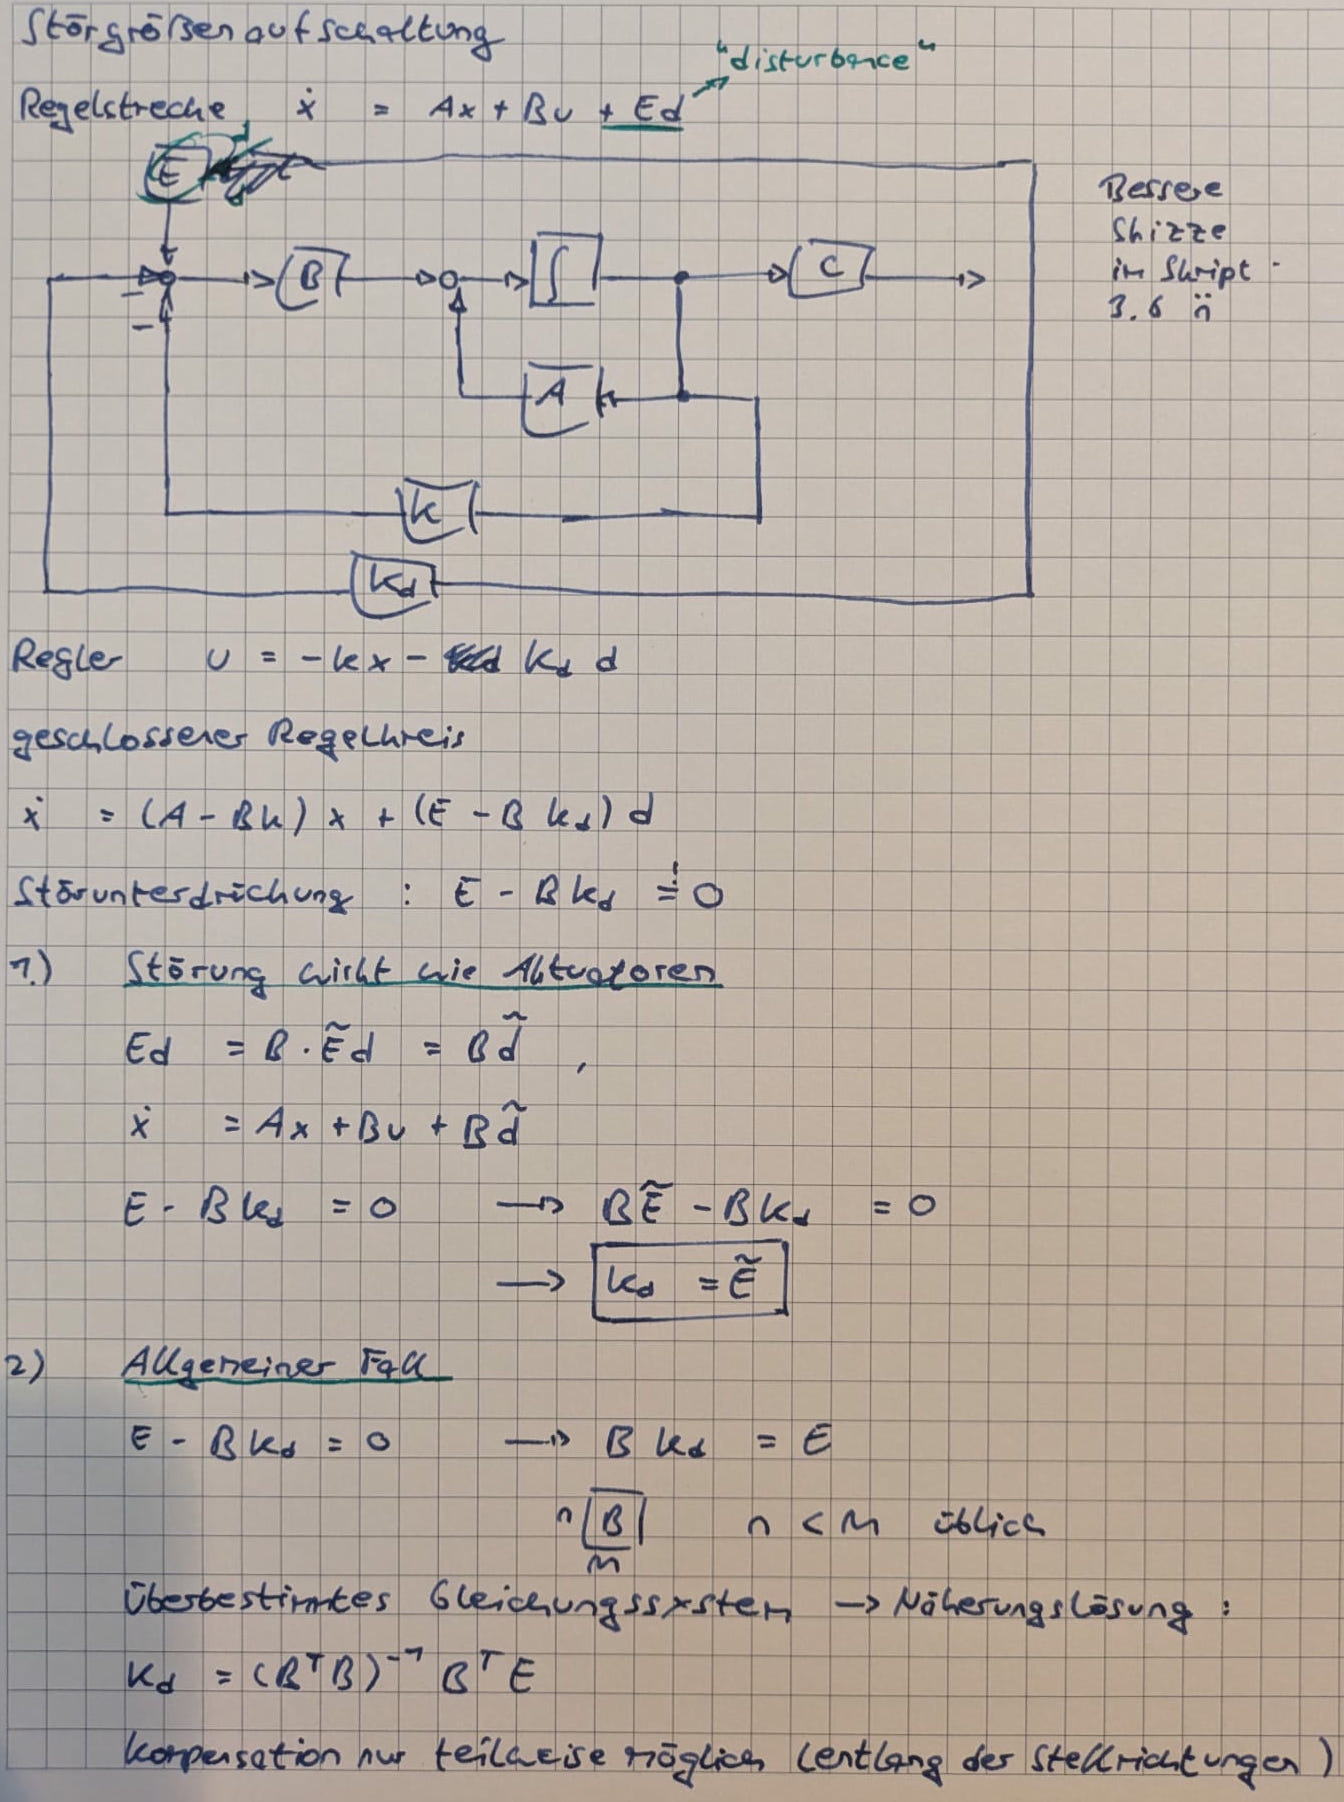 Störgrößenaufschaltung
"disturbance"
Regelstrecke ẋ = Ax + Bu + Ed
E d
Bessere
Skizze
im Skript
3.6 ü
B ∫ C
A
K
Kd
Regler u = -kx - Kd d
geschlossener Regelkreis
ẋ = (A - Bk) x + (E - B kd) d
Störunterdrückung : E - B kd =! 0
1.) Störung wirkt wie Aktuatoren
Ed = B · Ẽd = B d̃ ,
ẋ = Ax + Bu + B d̃
E - B kd = 0 → BẼ - B kd = 0
→ kd = Ẽ
2) Allgemeiner Fall
E - B kd = 0 → B kd = E
n B n < m üblich
m
Überbestimmtes Gleichungssystem → Näherungslösung :
Kd = (BᵀB)⁻¹ BᵀE
Kompensation nur teilweise möglich (entlang der Stellrichtungen)